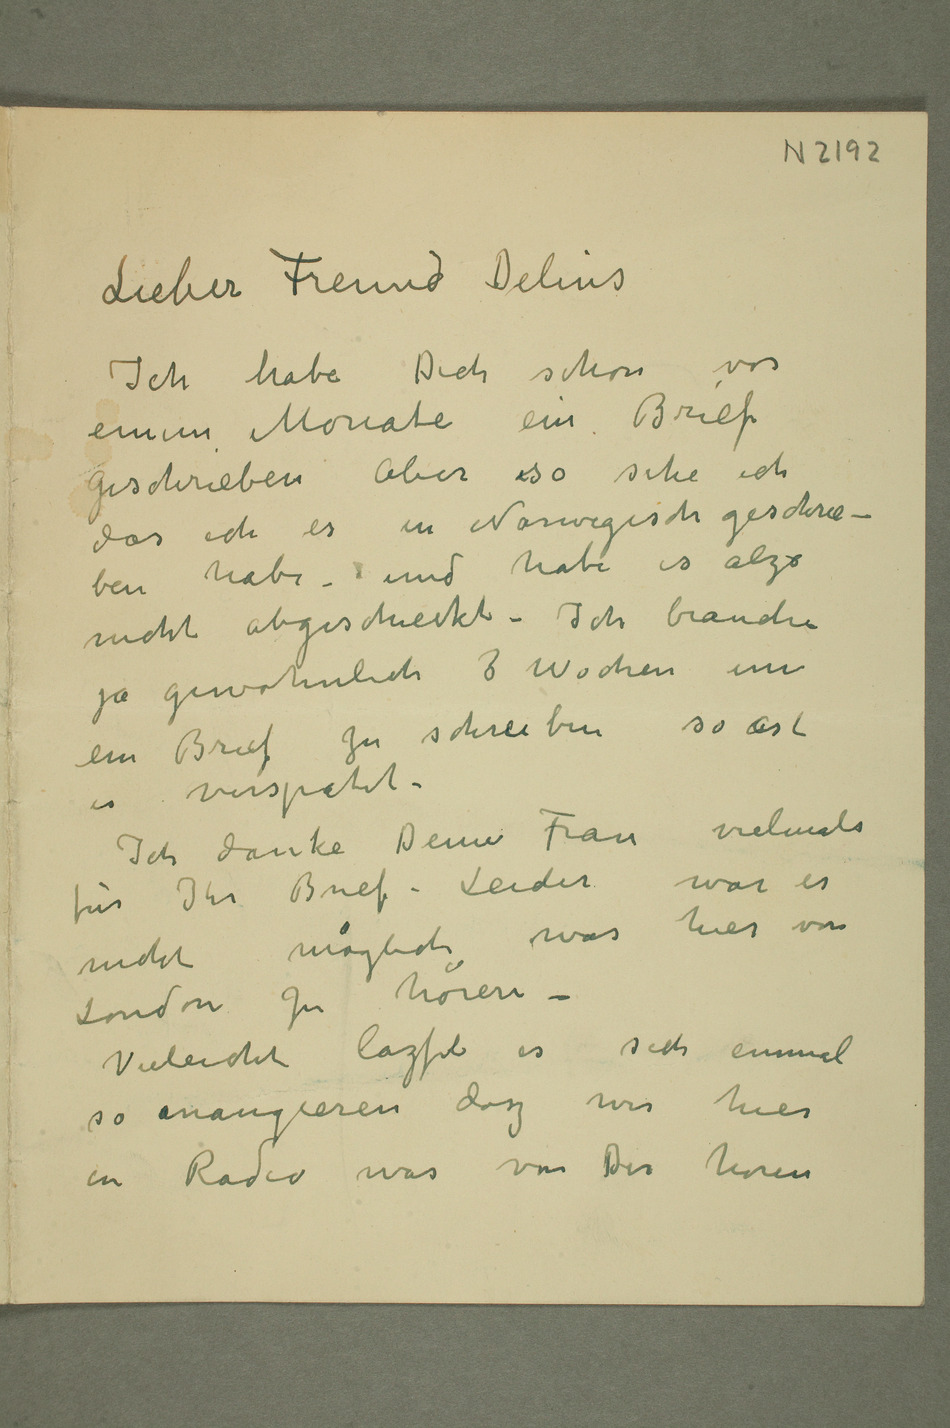 N 2192
Lieber Freund Delius
Ich habe Dich schon vor
einem Monate ein Brief
geschrieben aber so sehe ich
das ich es in Norwegisch geschrie-
ben habe – und habe es alzo
nicht abgeschickt – Ich brauche
ja gewohnlich 3 Wochen um
ein Brief zu schreiben so ist
es verspatet –
Ich danke Deine Frau vielmals
für Ihr Brief – Leider war es
nicht möglich was hier von
London zu hören –
Vieleicht lazst es sich einmal
so arrangieren dasz wir hier
in Radio was von Dir horen